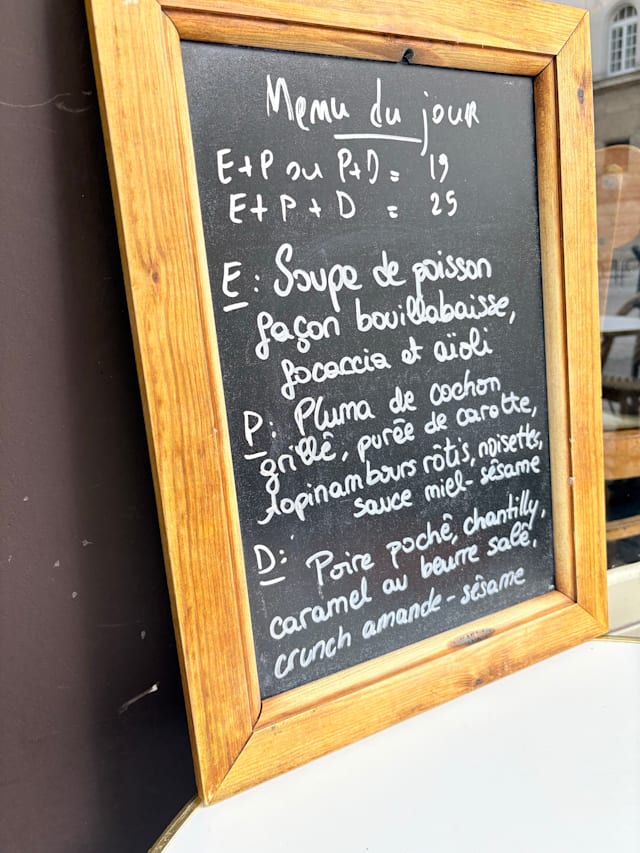 Menu du jour
E+P ou P+D = 19
E+P+D = 25
E: Soupe de poisson
façon bouillabaisse,
focaccia et aïoli
P: Pluma de cochon
grillê, purêe de carotte,
topinambours rôtis, noisettes,
sauce miel-sésame
D: Poire pochê, chantilly,
caramel au beurre salê,
crunch amande-sêsame